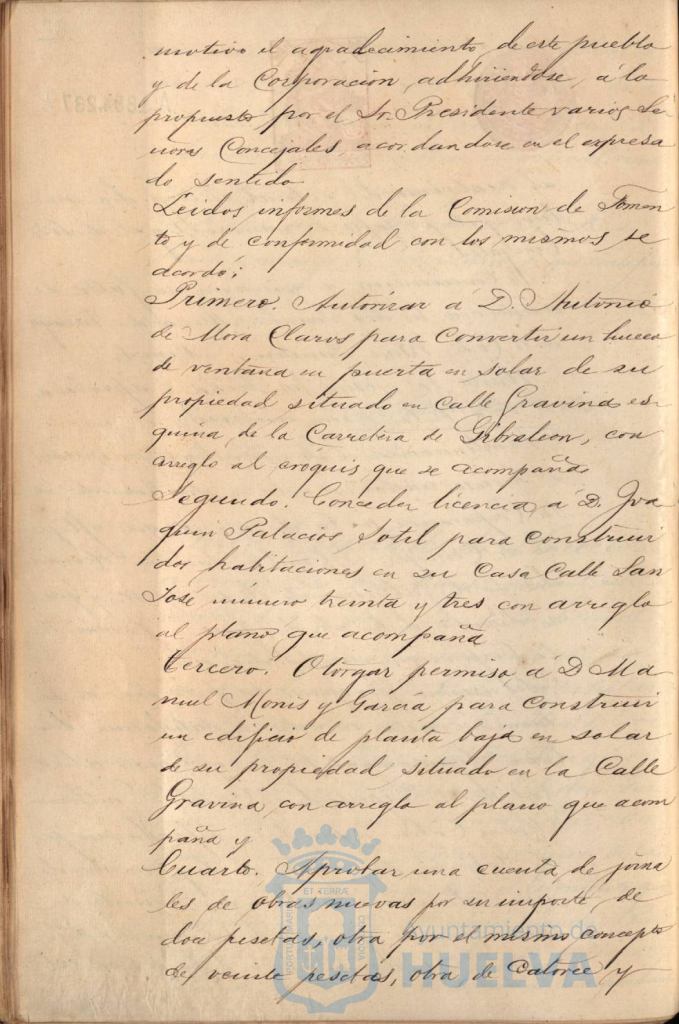 motivo el agradecimiento de este pueblo
y de la Corporacion, adhiriendose, á lo
propuesto por el Sr. Presidente varios Se
ñores Concejales, acordandose en el expresa
do sentido
Leidos informes de la Comision de Fomen
to y de conformidad con los mismos se
acordó;
Primero. Autorizar á D. Antonio
de Mora Claros para convertir un hueco
de ventana en puerta en solar de su
propiedad situado en calle Gravina es-
quina de la Carretera de Gibraleon, con
arreglo al cróquis que se acompaña
Segundo. Conceder licencia á D. Joa
quin Palacios Sotil para construir
dos habitaciones en su Casa Calle San
José número treinta y tres con arreglo
al plano que acompaña
tercero. Otorgar permiso á D Ma
nuel Monis y García para construir
un edificio de planta baja en solar
de su propiedad situado en la Calle
Gravina con arreglo al plano que acom
paña y
Cuarto. Aprobar una cuenta de jorna
les de obras nuevas por su importe de
doce pesetas, otra por el mismo concepto
de veinte pesetas, otra de catorce y
Ayuntamiento de
HUELVA